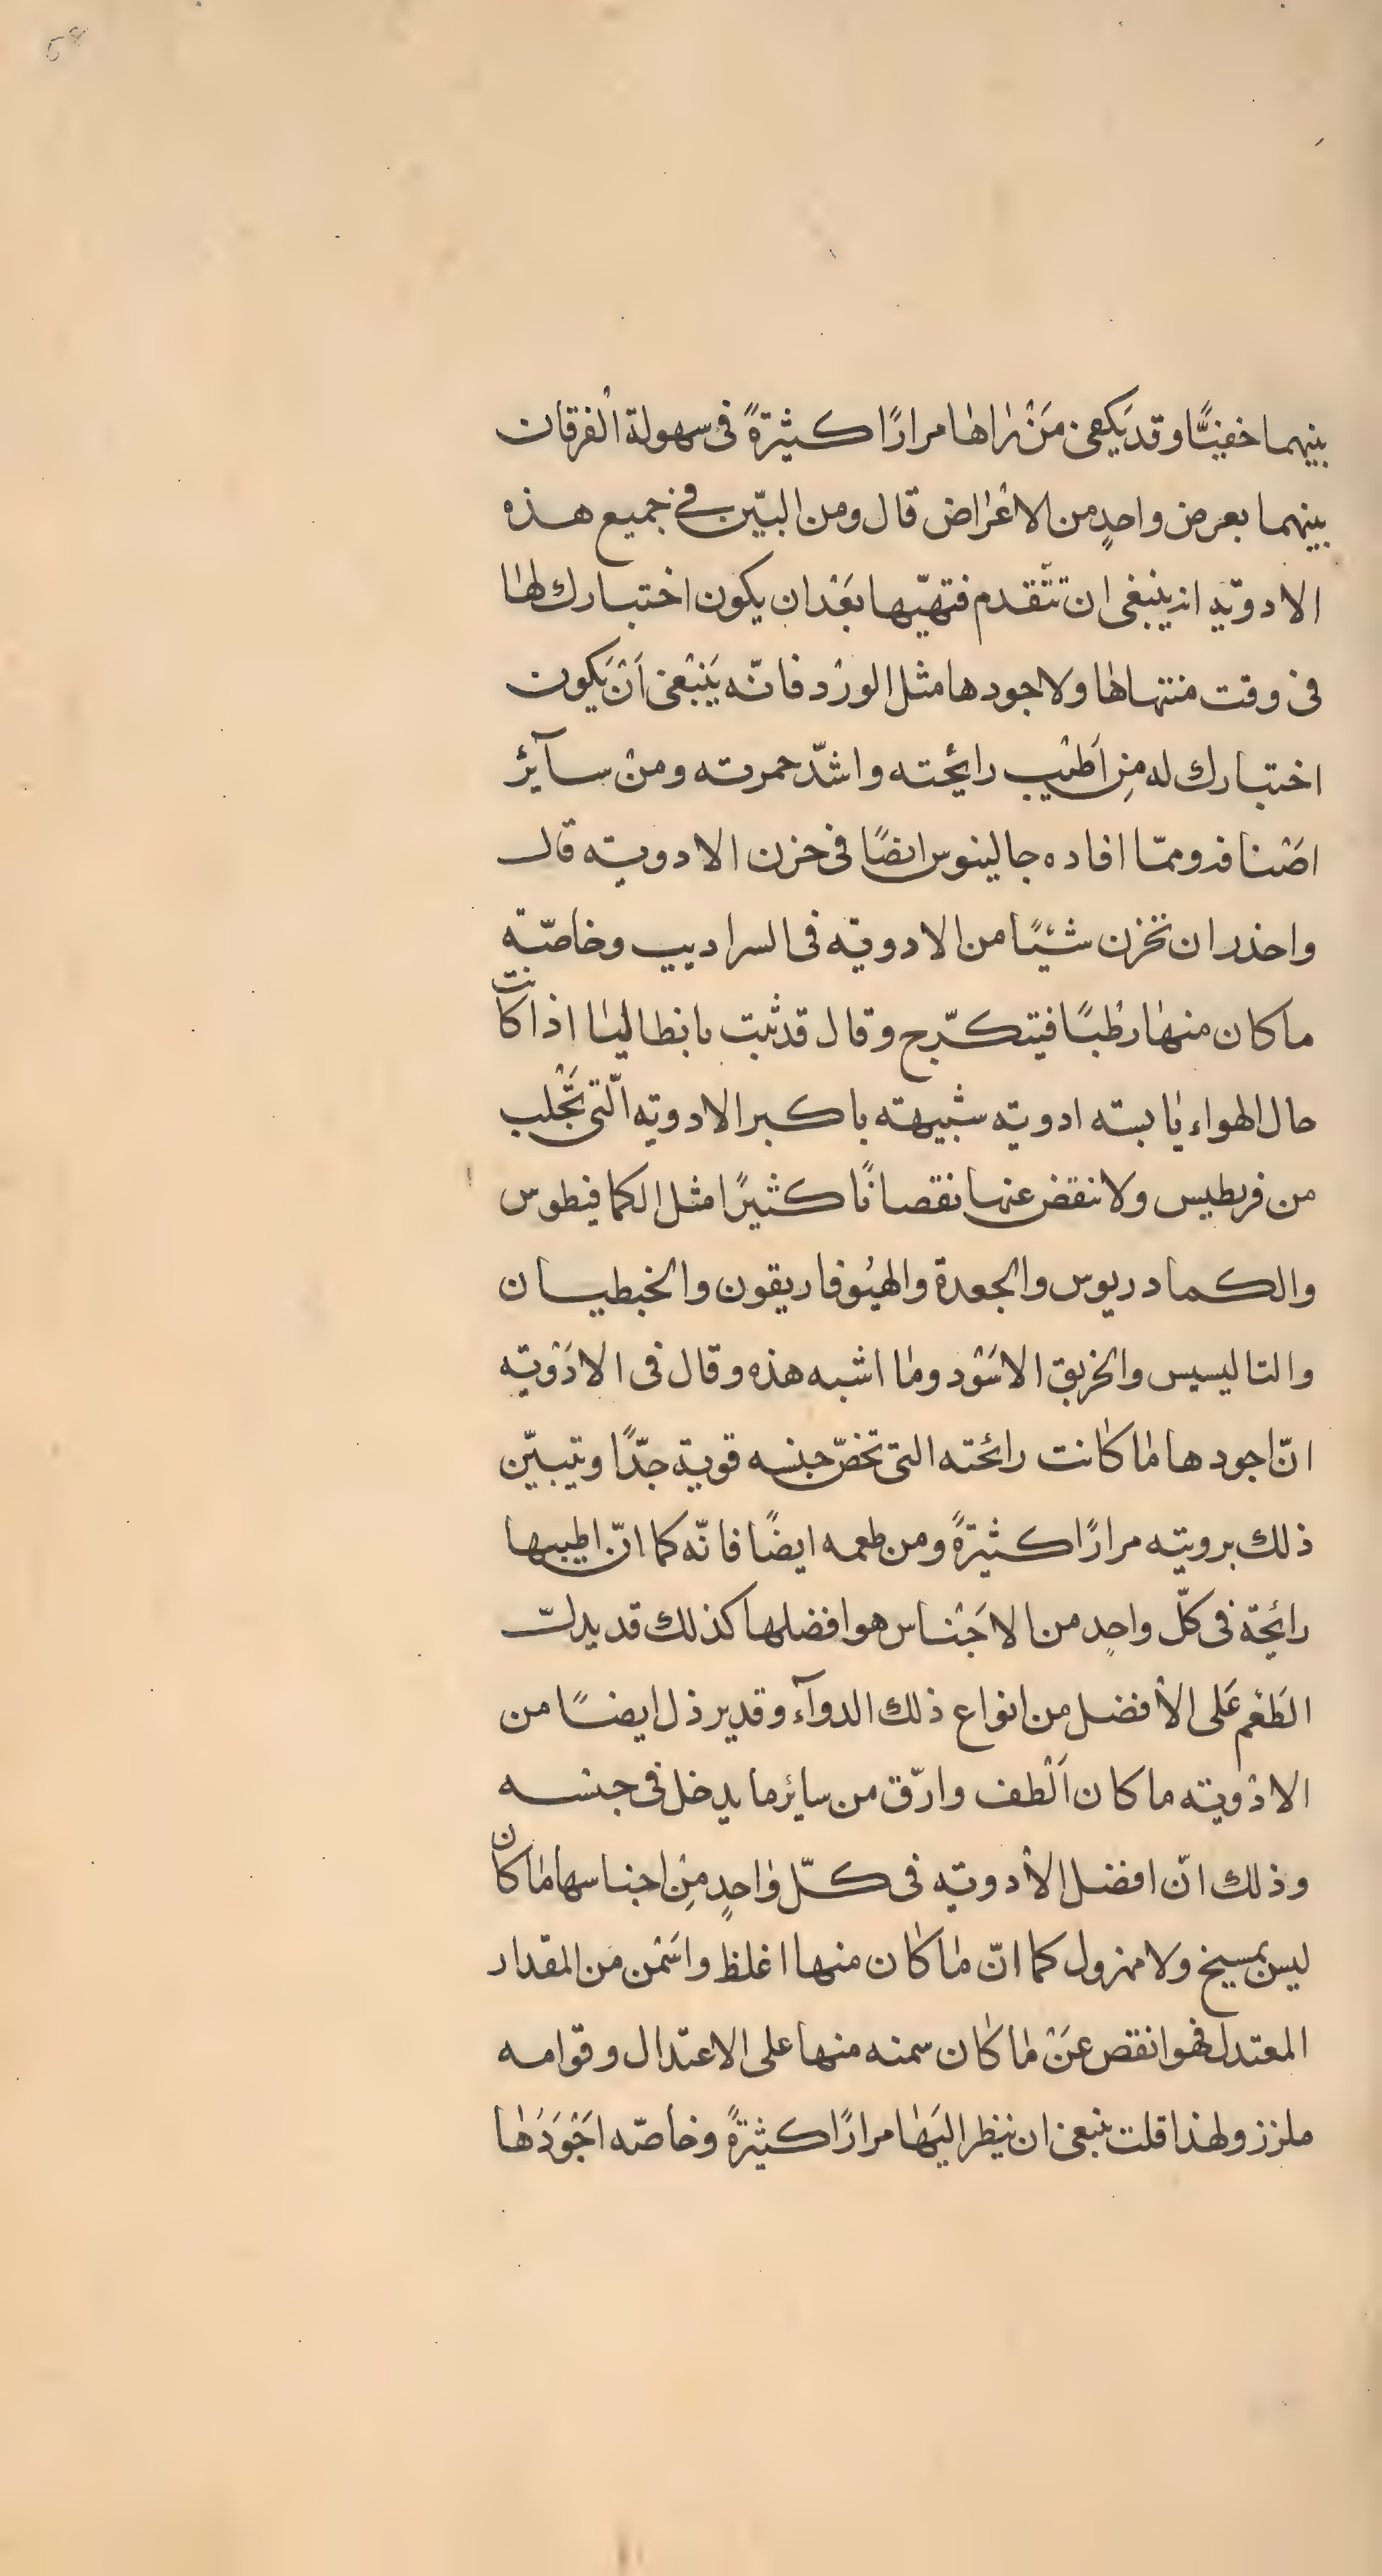 58
بينهما خفيًّا وقد يكفى مَنْ راٰها مرارًا كثيرةً فى سهولة الفرقان
بينهما بعرض واحدٍ من الاعْراض قال ومن البيّن فى جميع هذه
الادويّه انه ينبغى ان تتقدم فتهيّها بَعْد ان يكون اختبارك لها
فى وقت منتهاها ولاجودها مثل الورْد فانّه يَنبْغى اَنْ يَكون
اختبارك له مِن اَطْيب رائحته واشدّ حمرته ومنْ سآئر
اصْنافه وممّا افاده جالينوس ايضًا فى خزن الادويته قال
واحذر ان تخزن شيئًا من الادويّه فى السراديب وخاصّة
ما كان منها رطْبًا فيتكرّج وقال قد ثبت بانطاليا اذا كانت
حال الهواء يابسته ادويته شبيهته باكبر الادويته الّتى تُجْلب
من قريطيس ولا تنقض عنها نقصانًا كثيرًا مثل الكمافيطوس
والكمادريوس والجعدة والهيُوفاريقون والخبطيان
والتاليسيس والخربق الاسَوْد وما اشبه هذه وقال فى الادَوْيته
انّ اجودها ما كانت رائحته التى تخصّ جنسه قوية جدًّا ويتبيّن
ذلك برويته مرارًا كثيرةً ومن طعمه ايضًا فانّه كما انّ اطيبها
رائحة فى كلّ واحدٍ من الاَجْناس هو افضلها كذلك قد يدلّ
الطَعْم عَلى الأفضل من انواع ذلك الدوآء وقد يرذل ايضًا من
الادْويته ما كان اَلْطف وارّق من سائر ما يدخل فى جنسه
وذلك انّ افضل الأدويّه فى كلّ واحدٍ مِنْ اجناسها ما كان
ليس بمسيخ ولا مهزول كما انّ ما كان منها اغلظ واسَمْن من المقدار
المعتدل فهو انقص عَنْ ما كان سمنه منها على الاعتدال وقوامه
ملزز ولهذا قلت ينبغى ان ينظر اليَها مرارًا كثيرةً وخاصّه اجَوْدَها